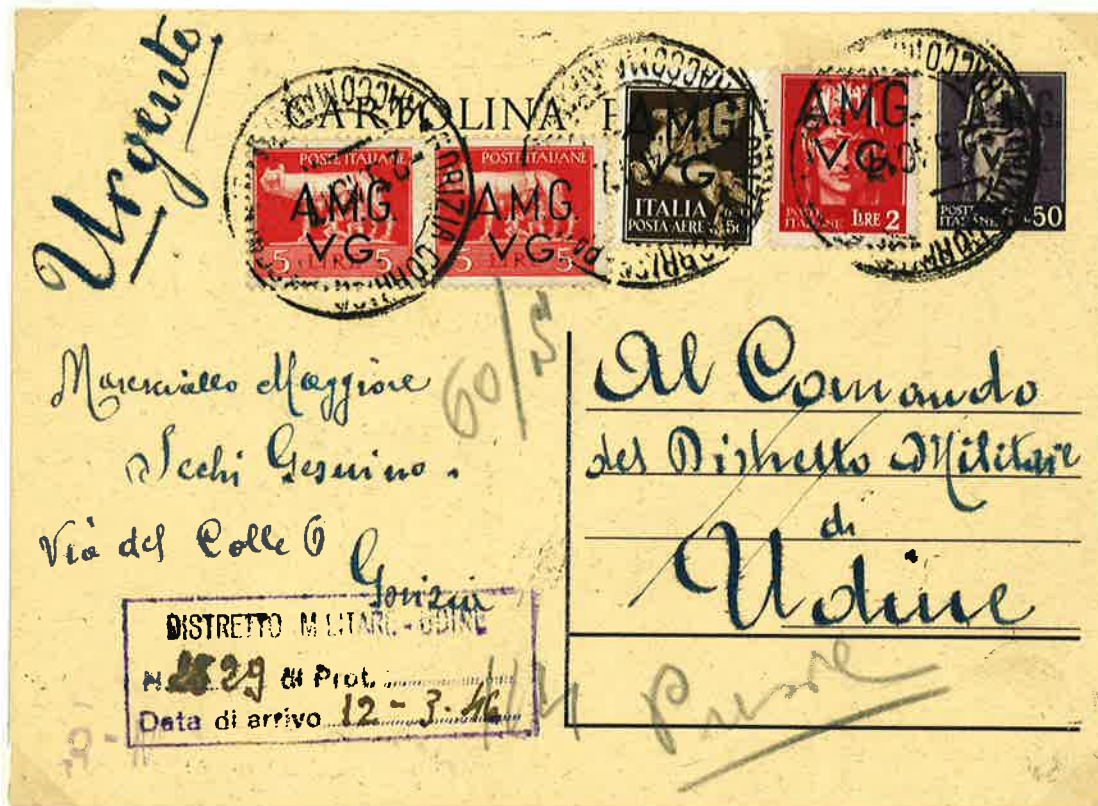 Urgente
CARTOLINA
POSTE ITALIANE
A.M.G.
V.G.
5 LIRE 5
POSTE ITALIANE
A.M.G.
V.G.
5 5
A.M.G.
V.G.
ITALIA
POSTA AEREA
A.M.G.
V.G.
POSTE ITALIANE LIRE 2
A.M.G.
V.G.
POSTE ITALIANE
50
GORIZIA CORRISP
60/
Maresciallo Maggiore
Gesuino
Via del Colle 6
Gorizia
Al Comando
del Distretto Militare
di
Udine
DISTRETTO MILITARE - UDINE
N. 29 di Prot.
Data di arrivo 12-3-46